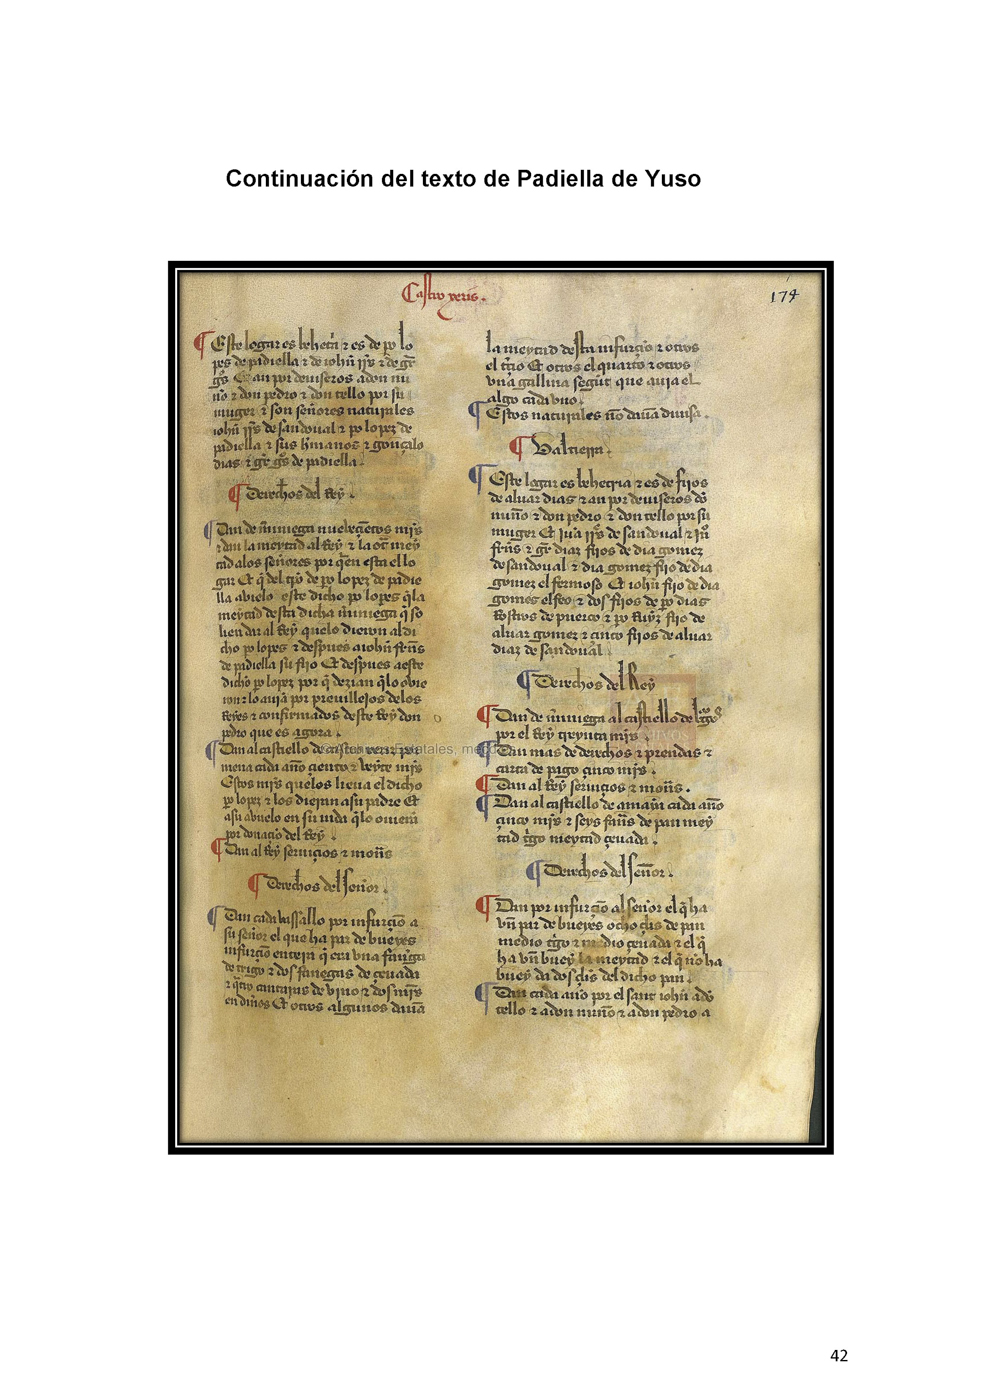 Continuación del texto de Padiella de Yuso
Castro xeris.
174
¶ Este logar es behetⁱa ⁊ es de po lo
pes de padiella ⁊ de
Et an por deuiseros a don nu
ño ⁊ don pedro ⁊ don tello por su
muger ⁊ son señores naturales
de sandoual ⁊ po lopez de
padiella ⁊ sus hmanos ⁊ gonçalo
dias ⁊ de padiella.
¶ Derechos del Rey.
¶ Dan de
⁊ dan la meytad al Rey ⁊ la otᵃ mey
tad alos señores por qⁱen esta el lo
gar Et de po lopez de padie
lla abuelo este dicho po lopes q̃ la
meytad desta dicha q̃ so
lien dar al Rey quelo dieron al di
cho po lopes ⁊ despues a iohñ
de padiella su fijo Et despues a este
dicho po lopez por q̃ dezian q̃lo ouie
ron ⁊ lo auia por preuillejos delos
Reyes ⁊ confirmados deste Rey don
pedro que es agora.
¶ Dan al castiello de
cada año çiento ⁊ veyte mrs
Estos mrs quelos lieua el dicho
po lopez ⁊ los dieran a su padre Et
a su abuelo en su vida q̃lo ouiera
por donaçio del Rey.
¶ Dan al Rey seruiçios ⁊ mon̄s
¶ Derechos del señor.
¶ Dan cada vassallo por infurçio a
su señor el que ha par de bueyes
infurçio entera q̃ era vna
de trigo ⁊ dos fanegas de çeuada
⁊ cantaras de vino ⁊ dos mrs
en Et otros algunos dauã
la meytad desta infurçio ⁊ otros
el Et otros el quarto ⁊ otros
vna gallina segũt que auia el
algo cada vno.
¶ Estos naturales nõ dauã diuisa.
¶ Valtierra.
¶ Este logar es behetria ⁊ es de fijos
de aluar dias ⁊ an por deuiseros dõ
nuño ⁊ don pedro ⁊ don tello por su
muger Et de sandoual ⁊
⁊ diaz fijos de dia gomez
de sandoual ⁊ dia gomez fijo de dia
gomez el fermoso Et iohñ fijo de dia
gomes el feo ⁊ dos fijos de po dias
Rostros de puerco ⁊ po Ruyz fijo de
aluar gomez ⁊ çinco fijos de aluar
diaz de sandoual
¶ Derechos del Rey
¶ Dan de al castiello de
por el Rey treynta mrs.
¶ Dan mas de derechos ⁊ prendas ⁊
carta de pago çinco mrs.
¶ Dan al Rey seruiçios ⁊ mon̄s.
¶ Dan al castiello de amaya cada año
çinco mrs ⁊ seys de pan mey
tad tⁱgo meytad çeuada.
¶ Derechos del señor.
¶ Dan por infurçio al señor el q̃ ha
vñ par de bueyes ocho de pan
medio tⁱgo ⁊ medio çeuada ⁊ el q̃
ha vñ buey la meytad ⁊ el q̃ no ha
buey da dos del dicho pan.
¶ Dan cada año por el sant iohñ a dõ
tello ⁊ a don nuño ⁊ a don pedro a
42